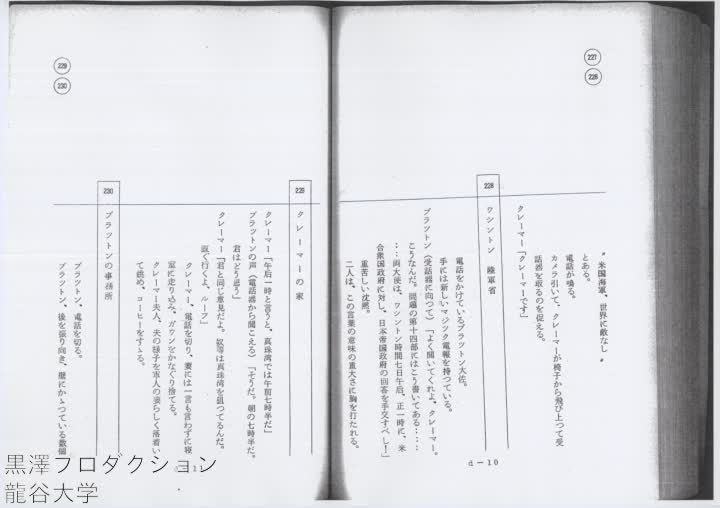 227
228
〝米国海軍、世界に敵なし〟
とある。
電話が鳴る。
カメラ引いて、クレーマーが椅子から飛び上つて受
話器を取るのを捉える。
クレーマー「クレーマーです」
228
ワシントン 陸軍省
電話をかけているブラツトン大佐。
手には新しいマジック電報を持つている。
ブラツトン(受話器に向つて)「よく聞いてくれよ、クレーマー。
こうなんだ。問題の第十四部にはこう書いてある‥‥
‥‥両大使は、ワシントン時間七日午后、正一時に、米
合衆国政府に対し、日本帝国政府の回答を手交すべし!」
重苦しい沈黙。
二人は、この言葉の意味の重大さに胸を打たれる。
d-10
229
230
229
クレーマーの家
クレーマー「午后一時と言うと、真珠湾では午前七時半だ」
ブラツトンの声(電話器から聞こえる)「そうだ。朝の七時半だ。
君はどう思う」
クレーマー「君と同じ意見だよ。奴等は真珠湾を狙つてるんだ。
直ぐ行くよ、ルーフ」
クレーマー、電話を切り、妻には一言も言わずに寝
室に走り込み、ガウンをかなぐり捨てる。
クレーマー夫人、夫の様子を軍人の妻らしく落着い
て眺め、コーヒーをすゝる。
230
ブラツトンの事務所
ブラツトン、電話を切る。
ブラツトン、後を振り向き、壁にかゝつている数個
黒澤プロダクション
龍谷大学